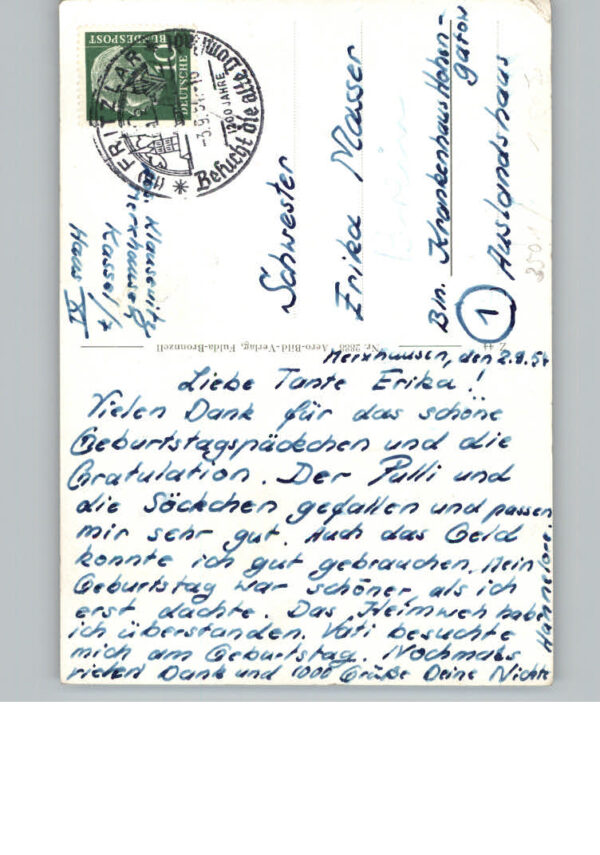 DEUTSCHE
BUNDESPOST
10
(16) FRITZLAR
-3.9.54.-10
1200 JAHRE
Besucht die alte Domstadt
Klausewitz
Merxhausen
Kassel/7
Haus XI
Schwester
Erika Masser
Bln. Krankenhaus Hohen-
gatow
Auslandshaus
1
Nr. 2886 Aero-Bild-Verlag, Fulda-Bronnzell
Z 44
Merxhausen, den 2.9.54
Liebe Tante Erika!
Vielen Dank für das schöne
Geburtstagspäckchen und die
Gratulation. Der Pulli und
die Söckchen gefallen und passen
mir sehr gut. Auch das Geld
konnte ich gut gebrauchen. Mein
Geburtstag war schöner, als ich
erst dachte. Das Heimweh habe
ich überstanden. Vati besuchte
mich am Geburtstag. Nochmals
vielen Dank und 1000 Grüße Deine Nichte
Hannelore.